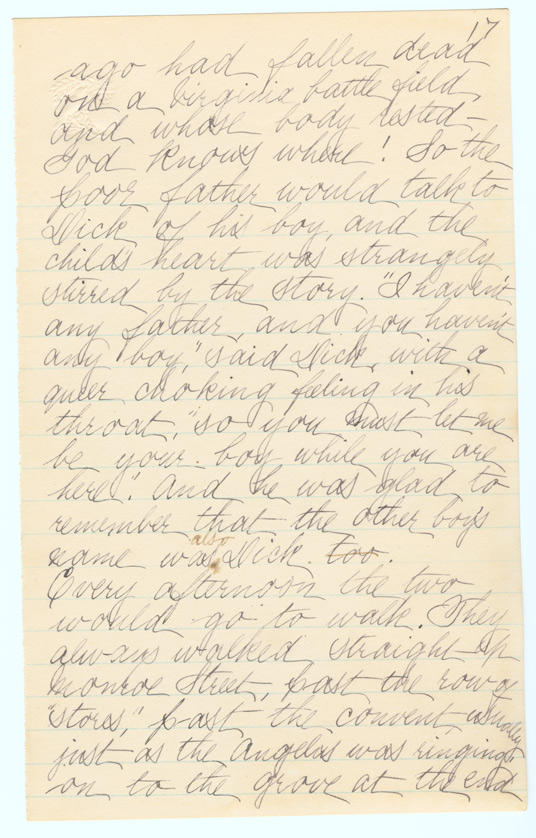 17
ago had fallen dead
on a Virginia battle field,
and whose body rested —
God knows where! So the
poor father would talk to
Dick of his boy, and the
childs heart was strangely
stirred by the story. "I haven't
any father, and you haven't
any boy," said Dick, with a
queer choking feeling in his
throat, "so you must let me
be your boy while you are
here". And he was glad to
remember that the other boy's
also
name was Dick too.
Every afternoon the two
would go to walk. They
always walked straight up
Monroe Street, past the row of
"stores," past the convent, usually
just as the Angelus was ringing,
on to the grove at the end